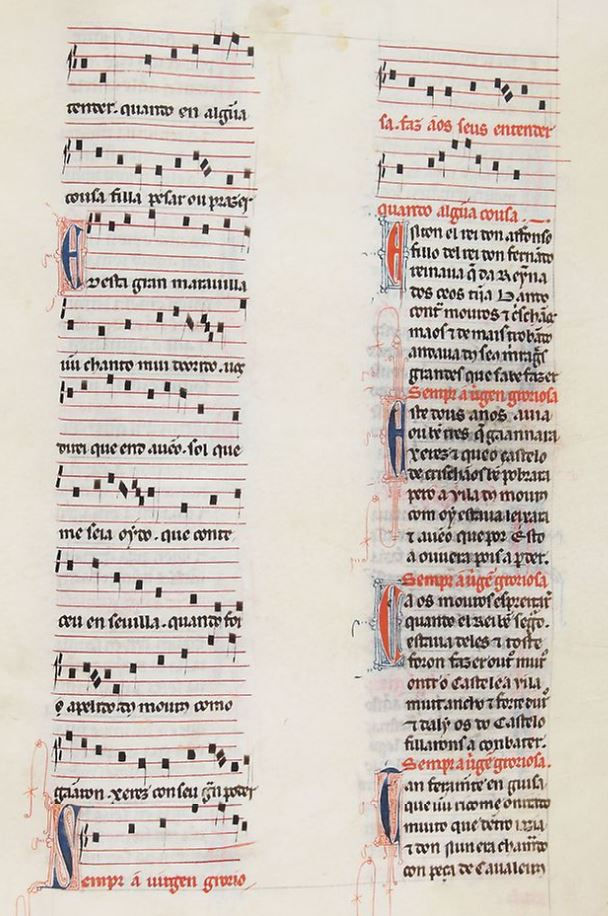 tender. quando en algũa
cousa filla pesar ou prazer
E desta gran marauilla
ũu chanto mui dorido. uꝯ
direi que end aueo. sol que
me seia oydo. que conte
ceu en seuilla. quando foi
o apelido dꝯ mourꝯ como
gãaron. xerez con seu grã poder
Sempr a uirgen grorio
sa. faz aos seus entender
quando algũa cousa
Eston el rei don affonso
fillo del rei don fernãdo
reinaua q̃ da Reyna
dos ceos tĩia bando
contra mouros τ crischãos
maos τ de mais trobãdo
andaua dos seus miragres
grandes que sabe fazer
Sempr a uirgen groriosa
Este dous anos auia
ou ben tres q̃ gaannara
xerez τ que o castelo
de crischãos ben pobrara
pero a vila dos mouros
com oy estaua leixara
τ aueo que por esto
a ouuera pois a perder.
Sempr a uirgẽ groriosa
Ca os mouros espreitarõ
quando el Rei ben segur.
estaua deles τ toste
foron fazer outro muro
ontr o Castel e a vila
muit. ancho τ forte τ duro
τ daly os do Castelo
fillarons a conbater.
Sempr a uirgẽ groriosa.
Tan feramente en guisa
que ũu ricome onrrado
muito que dentro iazia
τ don Nun era chamado
con peça de Caualeiros